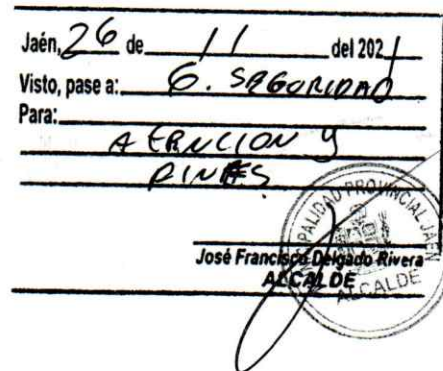 Jaén, 26 de 11 del 2021
Visto, pase a: G. SEGURIDAD
Para:
ATENCION Y
FINES
MUNICIPALIDAD PROVINCIAL JAÉN
José Francisco Delgado Rivera
ALCALDE
ALCALDE